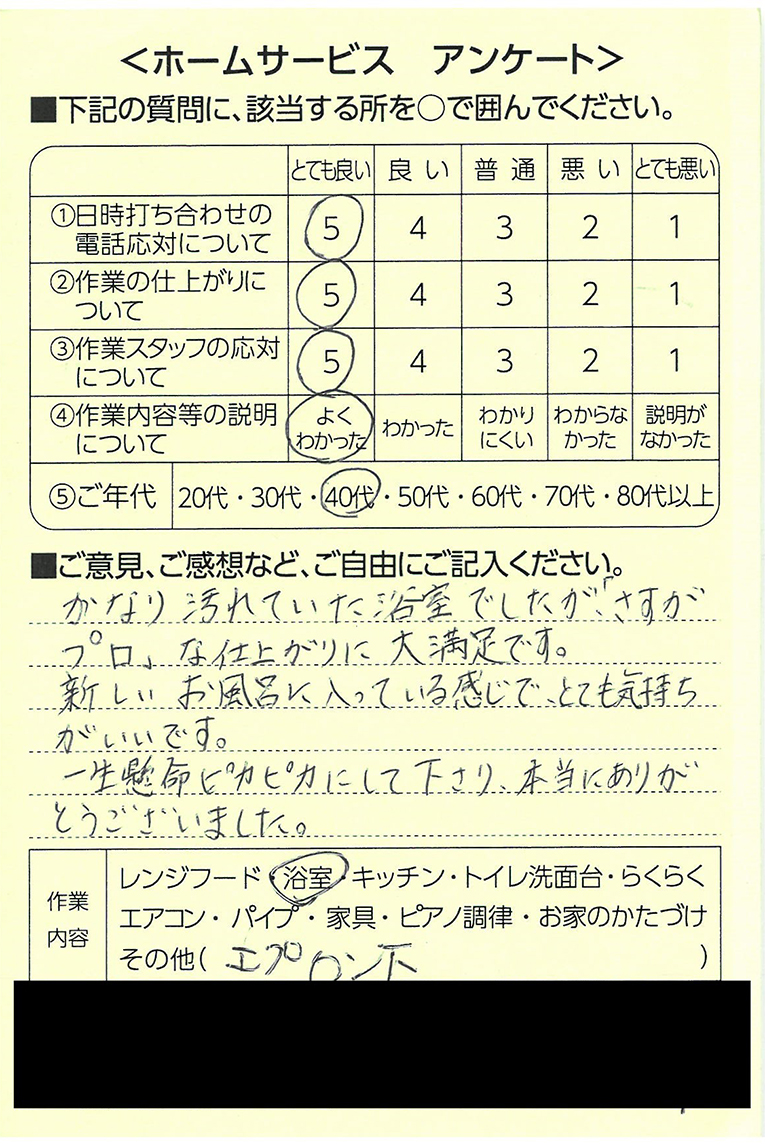 ＜ホームサービス　アンケート＞
■下記の質問に、該当する所を○で囲んでください。
とても良い　良い　普通　悪い　とても悪い
①日時打ち合わせの
電話応対について　5　4　3　2　1
②作業の仕上がりに
ついて　5　4　3　2　1
③作業スタッフの応対
について　5　4　3　2　1
④作業内容等の説明
について　よくわかった　わかった　わかりにくい　わからなかった　説明がなかった
⑤ご年代　20代・30代・40代・50代・60代・70代・80代以上
■ご意見、ご感想など、ご自由にご記入ください。
かなり汚れていた浴室でしたが、「さすが
プロ」な仕上がりに大満足です。
新しいお風呂に入っている感じで、とても気持ち
がいいです。
一生懸命ピカピカにして下さり、本当にありが
とうございました。
作業内容
レンジフード・浴室・キッチン・トイレ洗面台・らくらく
エアコン・パイプ・家具・ピアノ調律・お家のかたづけ
その他（エプロン下）